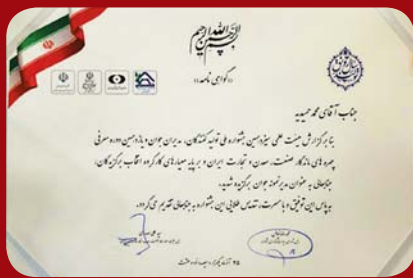 بسم الله الرحمن الرحیم
«گواهی نامه»
جناب آقای محمد حمیدیه
بنا بر گزارش هیئت علمی سیزدهمین جشنواره ملی تولید کنندگان، مدیران جوان و یازدهمین دوره معرفی
چهره های ماندگار صنعت، معدن و تجارت ایران و بر پایه معیارهای کارگروه انتخاب برگزیدگان،
جنابعالی به عنوان مدیر نمونه جوان برگزیده شدید.
به پاس این توفیق و با مسرت، تندیس طلایی این جشنواره به جنابعالی تقدیم می گردد.